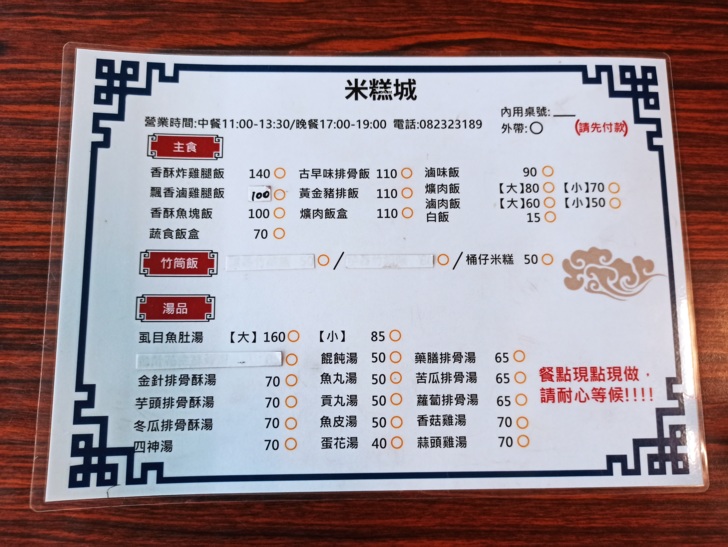 米糕城
營業時間:中餐11:00-13:30/晚餐17:00-19:00 電話:082323189
內用桌號:
外帶:
(請先付款)
主食
香酥炸雞腿飯 140 古早味排骨飯 110 滷味飯 90
飄香滷雞腿飯 100 黃金豬排飯 110 爌肉飯 【大】80 【小】70
香酥魚塊飯 100 爌肉飯盒 110 滷肉飯 【大】60 【小】50
白飯 15
蔬食飯盒 70
竹筒飯 / / 桶仔米糕 50
湯品
虱目魚肚湯 【大】160 【小】 85
餛飩湯 50 藥膳排骨湯 65
金針排骨酥湯 70 魚丸湯 50 苦瓜排骨湯 65
芋頭排骨酥湯 70 貢丸湯 50 蘿蔔排骨湯 65
冬瓜排骨酥湯 70 魚皮湯 50 香菇雞湯 70
四神湯 70 蛋花湯 40 蒜頭雞湯 70
餐點現點現做，
請耐心等候!!!!